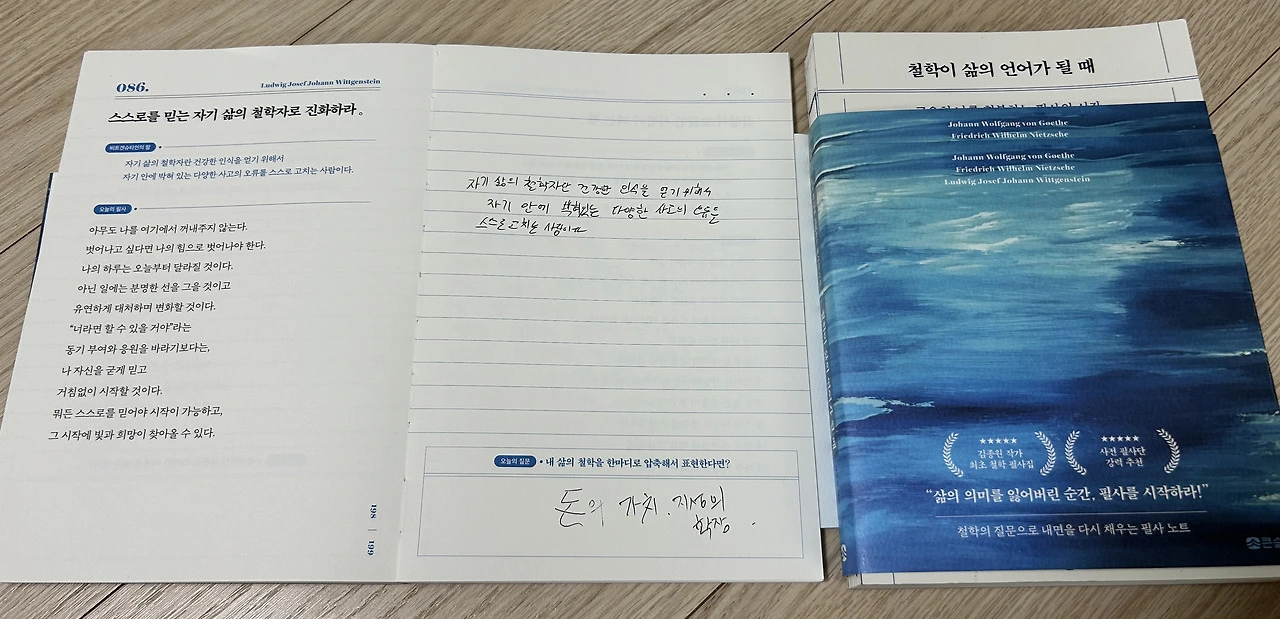 086.
Ludwig Josef Johann Wittgenstein
스스로를 믿는 자기 삶의 철학자로 진화하라.
비트겐슈타인의 말
자기 삶의 철학자란 건강한 인식을 얻기 위해서
자기 안에 박혀 있는 다양한 사고의 오류를 스스로 고치는 사람이다.
오늘의 필사
아무도 나를 여기에서 꺼내주지 않는다.
벗어나고 싶다면 나의 힘으로 벗어나야 한다.
나의 하루는 오늘부터 달라질 것이다.
아닌 일에는 분명한 선을 그을 것이고
유연하게 대처하며 변화할 것이다.
“너라면 할 수 있을 거야”라는
동기 부여와 응원을 바라기보다는,
나 자신을 굳게 믿고
거침없이 시작할 것이다.
뭐든 스스로를 믿어야 시작이 가능하고,
그 시작에 빛과 희망이 찾아올 수 있다.
198 | 199
자기 삶의 철학자란 건강한 인식을 얻기 위해서
자기 안에 박혀있는 다양한 사고의
스스로 고치는 사람이다
오늘의 질문 • 내 삶의 철학을 한마디로 압축해서 표현한다면?
돈의 가치. 지성의
확장.
철학이 삶의 언어가 될 때
Johann Wolfgang von Goethe
Friedrich Wilhelm Nietzsche
Johann Wolfgang von Goethe
Friedrich Wilhelm Nietzsche
Ludwig Josef Johann Wittgenstein
김종원 작가
최초 철학 필사집
사전 필사단
강력 추천
“삶의 의미를 잃어버린 순간, 필사를 시작하라!”
철학의 질문으로 내면을 다시 채우는 필사 노트